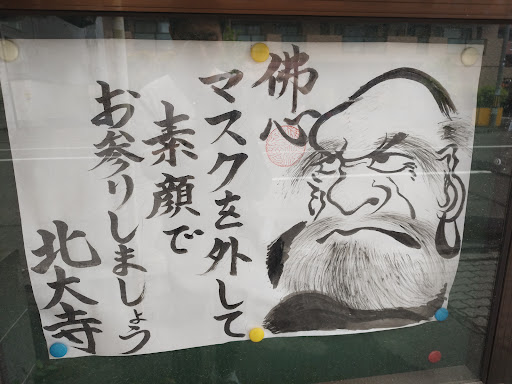 佛心
マスクを外して
素顔で
お参りしましょう
北大寺